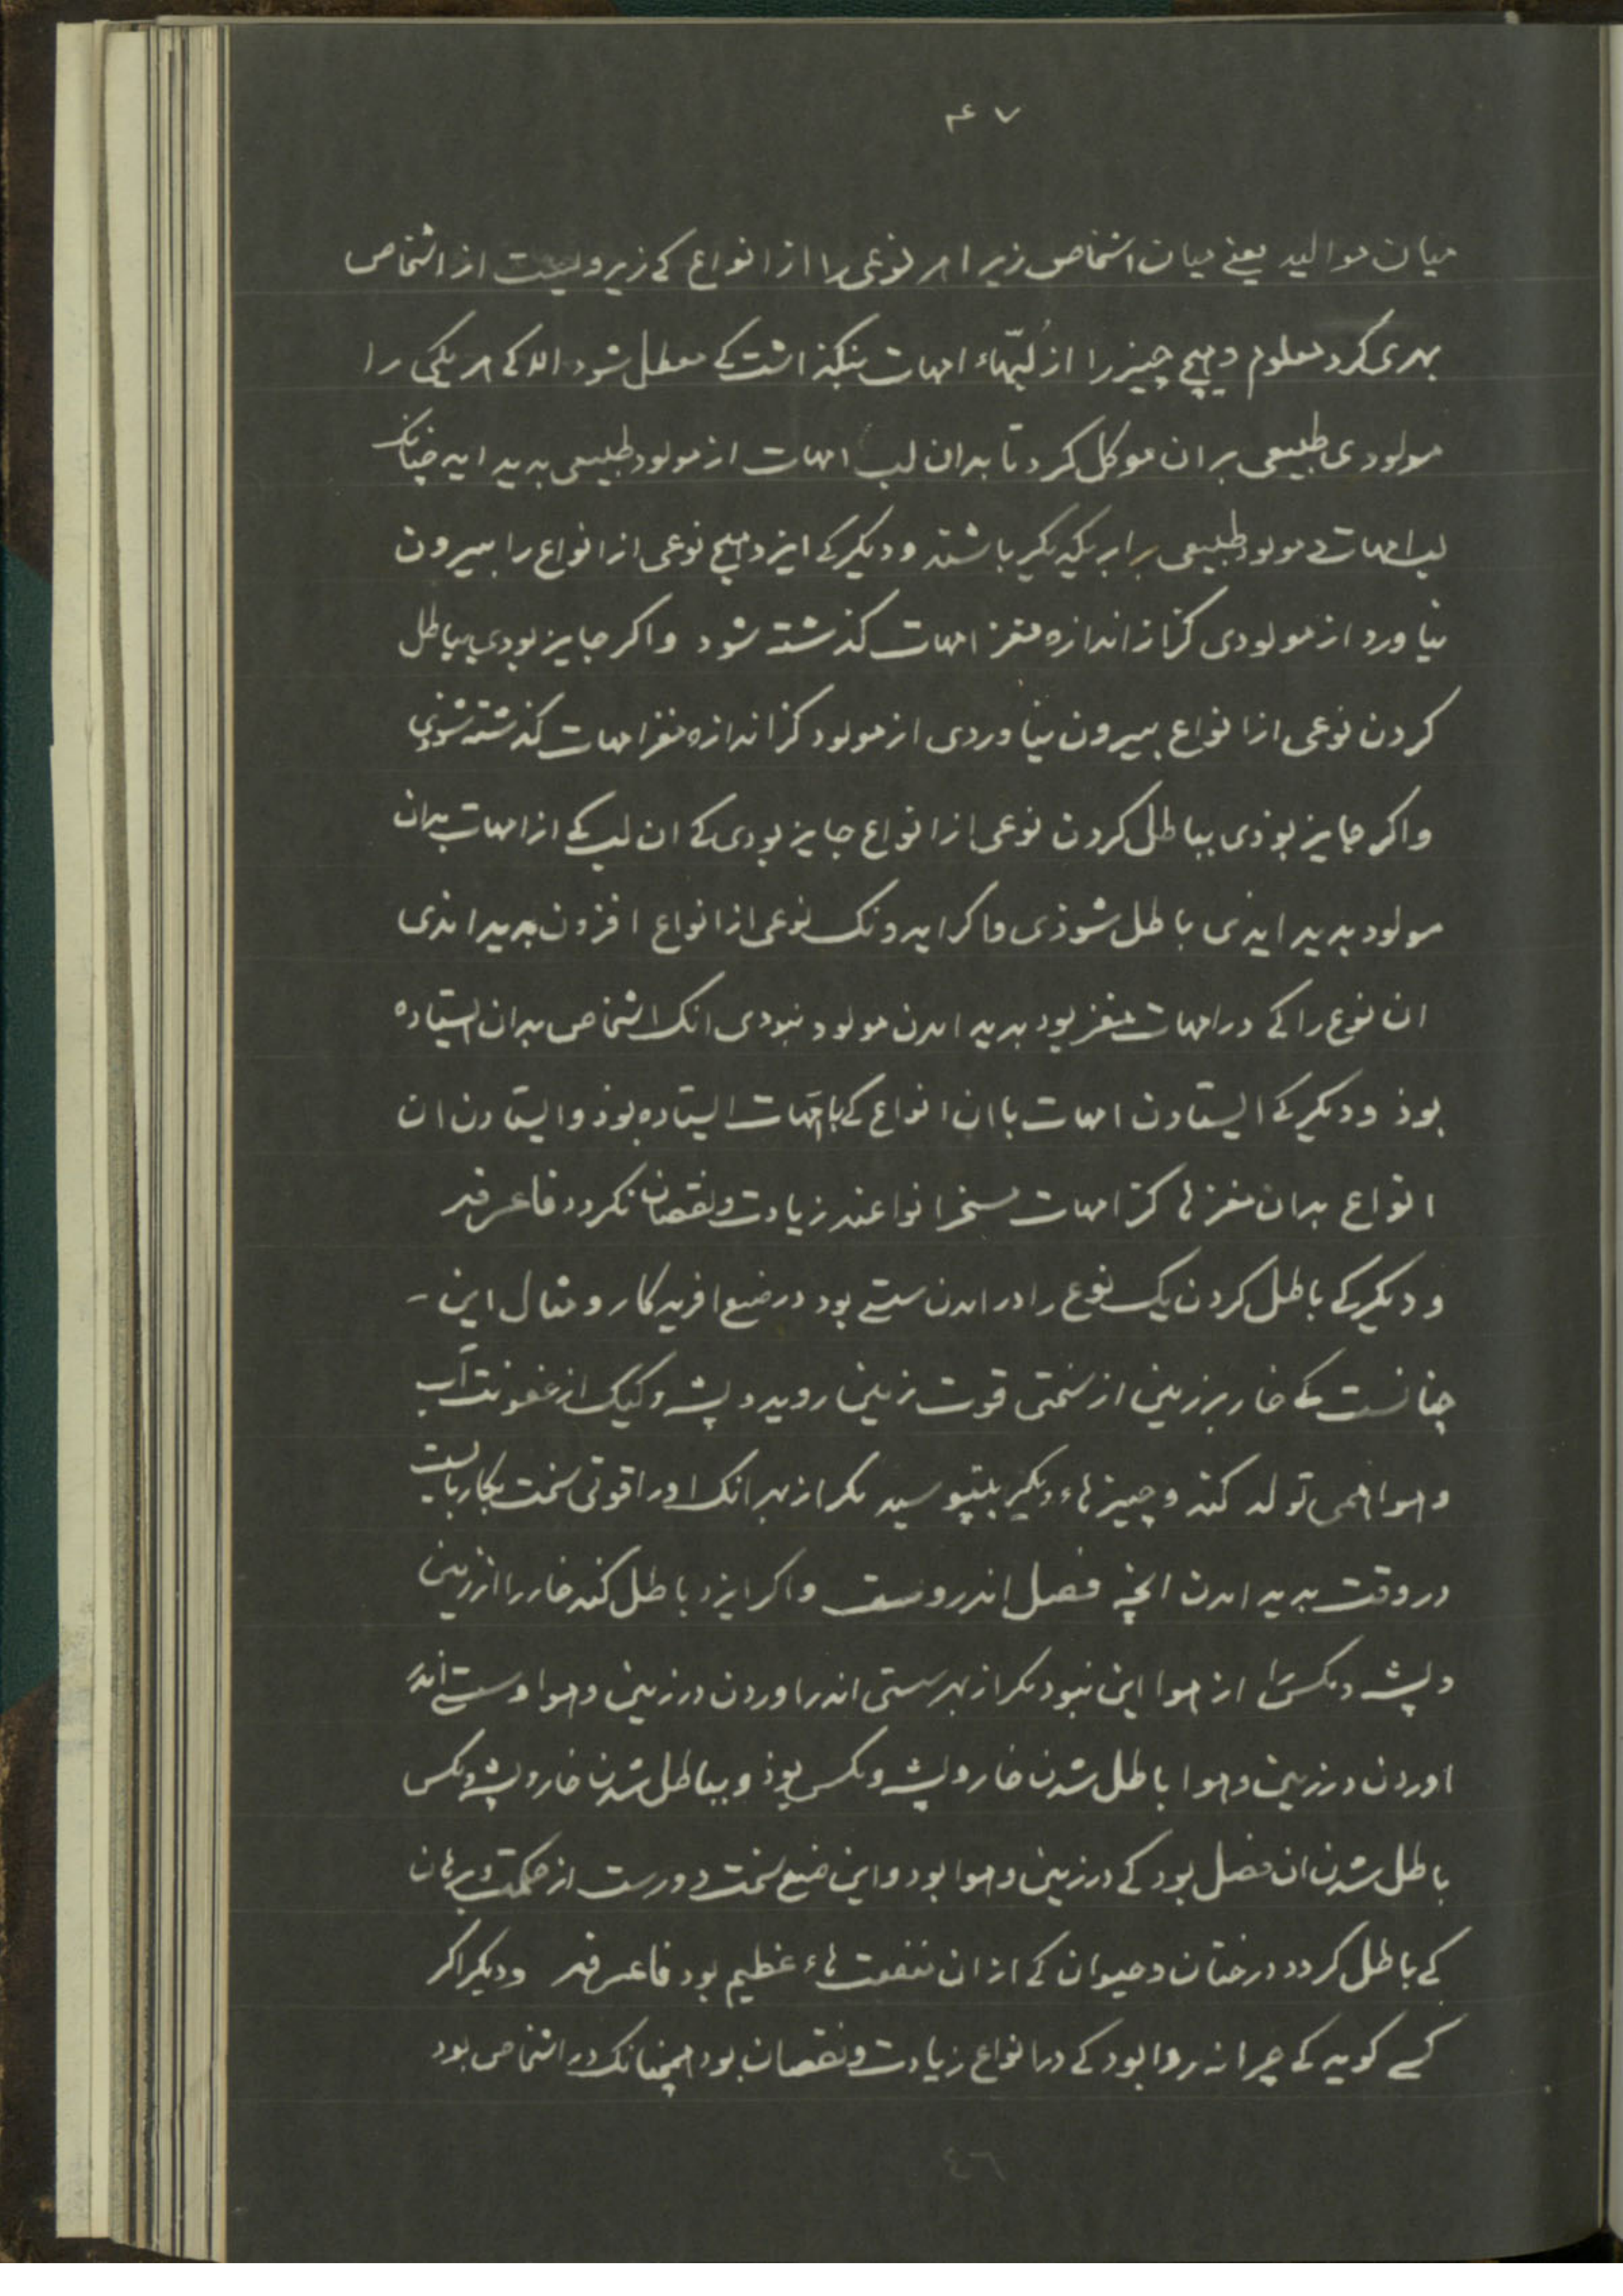 ۴۷
میان موالید یعنے میان اشخاص زیرا هر نوعی را از انواع کے زیر ویست از اشخاص
بهری کرد معلوم و هیچ چیز را از لُبّهاء امهات بنگذاشت کے معطل شود الا کے هر یکی را
مولودی طبیعی بر ان موکل کرد تا بدان لب امهات از مولود طبیعی بدید اید چنانک
لب امهات و مولود طبیعی برابر یکدیگر باشند و دیگر کے ایزد هیچ نوعی از انواع را بیرون
نیاورد از مولودی کز از اندازه مغز امهات گذشته شود واکر جایز بودی بباطل
کردن نوعی از انواع بیرون نیاوردی از مولود کز اندازه مغز امهات گذشته شوذی
واکر جایز بوذی بباطل کردن نوعی از انواع جایز بودی کے ان لب کے از امهات بدان
مولود بدید ایذی باطل شوذی واکر ایدونک نوعی از انواع افزون بدید امذی
ان نوع را کے در امهات مغز بود بدید امدن مولود نبودی انک اشخاص بدان ایستاده
بوذ ودیکر کے ایستادن امهات با ان انواع کے با امّهات ایستاده بوذ وایستادن ان
انواع بدان مغزها کز امهات مسخر انواعند زیادت ونقصان نکردد فاعرفه
ودیکر کے باطل کردن یک نوع را در امدن سستے بود در صنع افریدکار ومثال این
چنانست کے خار بر زمین از سختی قوت زمین روید و پشه وکیک از عفونت آب
وهوا همی تولد کند وچیزهاء دیکر بپوسید مکر از بهر انک او را قوتی سخت بکار بایست
در وقت بدید امدن انچه فضل اندروست واکر ایزد باطل کند خار را از زمین
و پشه ومکس را از هوا این نبود مکر از بهر سستی اندر اوردن در زمین وهوا وسستے اندر
اوردن در زمین وهوا باطل شدن خار و پشه ومکس بوذ وبباطل شدن خار و پشه ومکس
باطل شدن ان فضل بود کے در زمین وهوا بود واین صنع سخت دورست از حکمت وبرهان
کے باطل کردد درختان وحیوان کے از ان منفعت هاء عظیم بود فاعرفه ودیکر اکر
کسے کوید کے چرا نه روا بود کے در انواع زیادت ونقصان بود همچنانک در اشخاص بود
٤٦